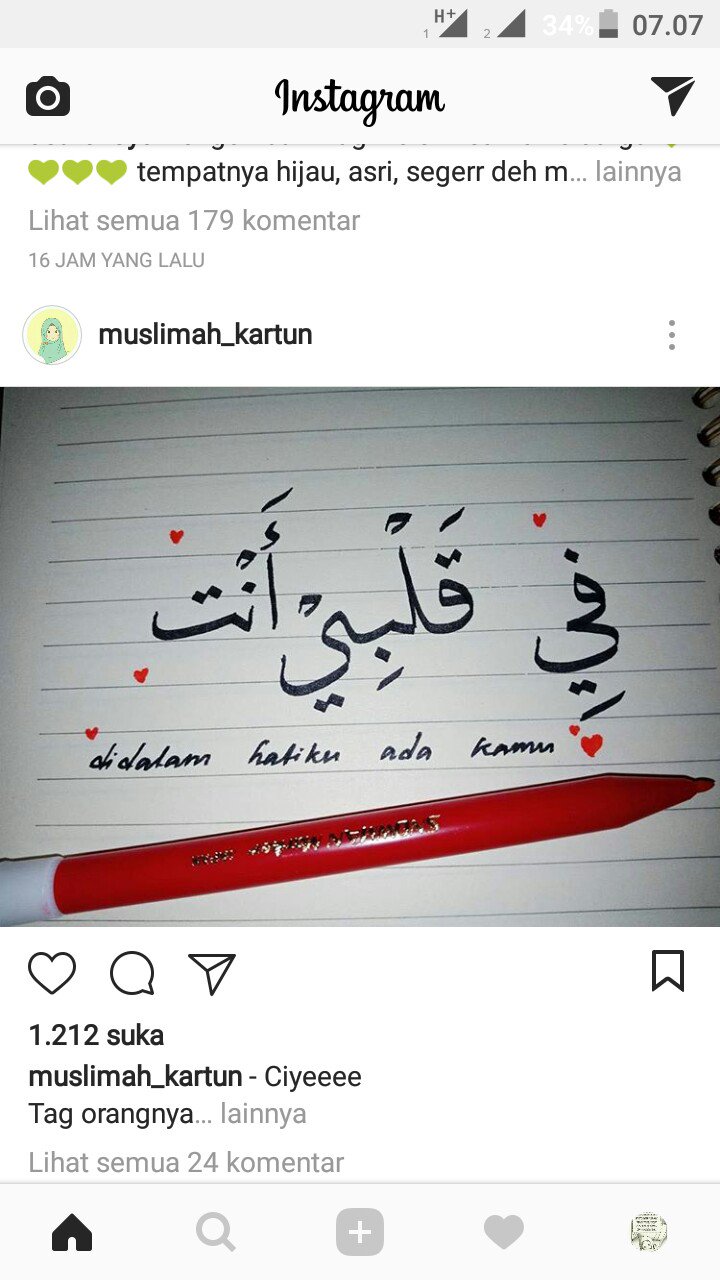 H+
1 2 34% 07.07
Instagram
tempatnya hijau, asri, segerr deh m... lainnya
Lihat semua 179 komentar
16 JAM YANG LALU
muslimah_kartun
فِي قَلْبِيْ أَنْت
didalam hatiku ada kamu
1.212 suka
muslimah_kartun - Ciyeeee
Tag orangnya... lainnya
Lihat semua 24 komentar